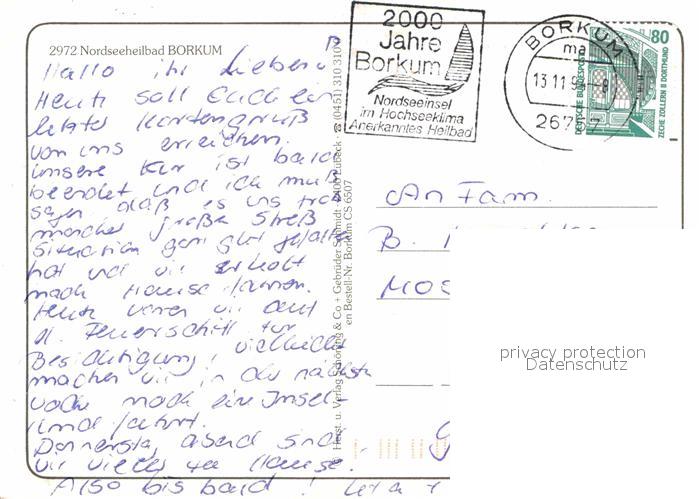 2972 Nordseeheilbad BORKUM
Hallo ihr Lieben
Heute soll Euch ein
letzter Kartengruß
von uns erreichen.
unsere Kur ist bald
beendet und ich muß
sagen, daß es uns trotz
mancher großer Streß
Situation ganz gut gefallen
hat und wir erholt
nach Hause fahren.
Heute waren wir auf
d. Feuerschiff zur
Besichtigung, vielleicht
machen wir in der nächsten
Woche noch eine Insel-
rundfahrt.
Donnerstag abend sind
wir wieder zu Hause.
Also bis bald!
Herst. u. Verlag Schöning & Co + Gebrüder Schmidt · 2400 Lübeck ✆ (0451) 310 310
Bestell-Nr. Borkum CS 6507
2000
Jahre
Borkum
Nordseeinsel
im Hochseeklima
Anerkanntes Heilbad
BORKUM
ma
13.11.9
-8
DEUTSCHE BUNDESPOST
80
ZECHE ZOLLERN II DORTMUND
An Fam.
B.
MOS
privacy protection
Datenschutz